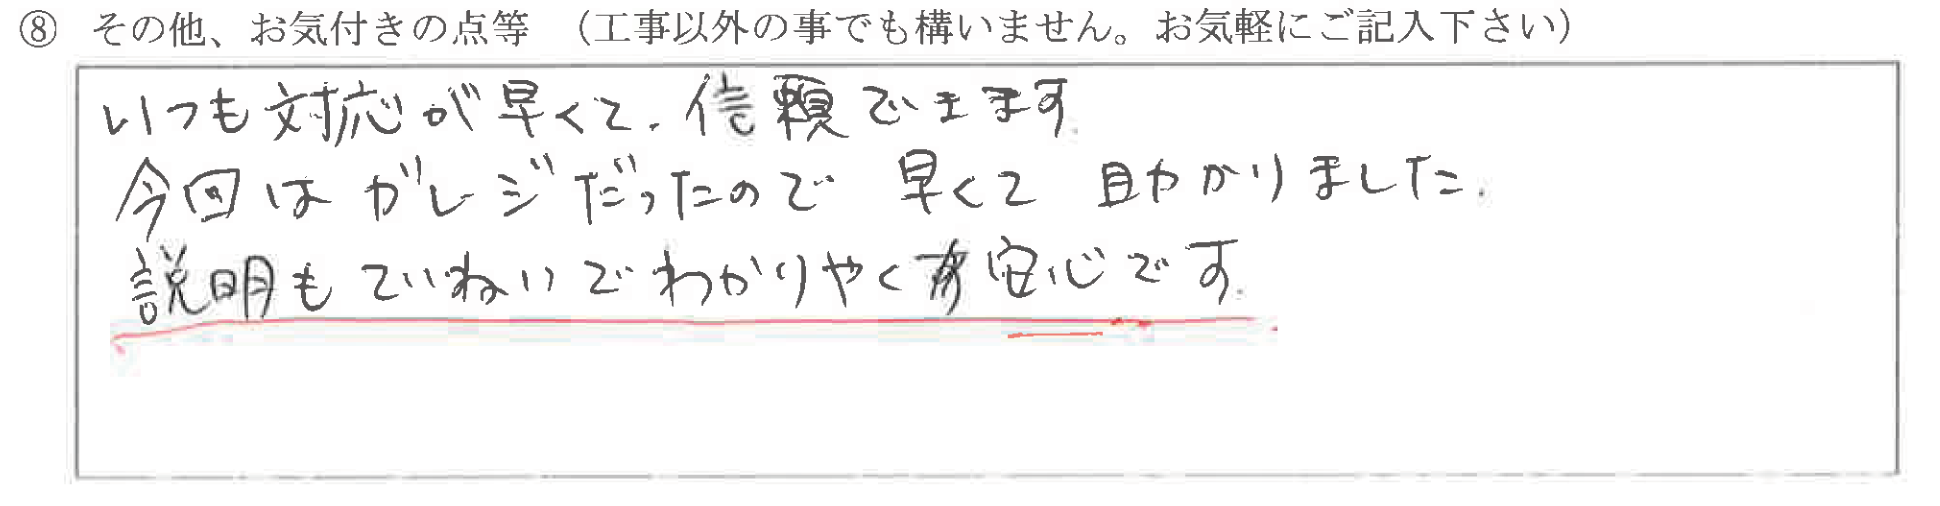 ⑧ その他、お気付きの点等 （工事以外の事でも構いません。お気軽にご記入下さい）
いつも対応が早くて、信頼できます.
今回はガレージだったので 早くて 助かりました.
説明もていねいでわかりやく 安心です.